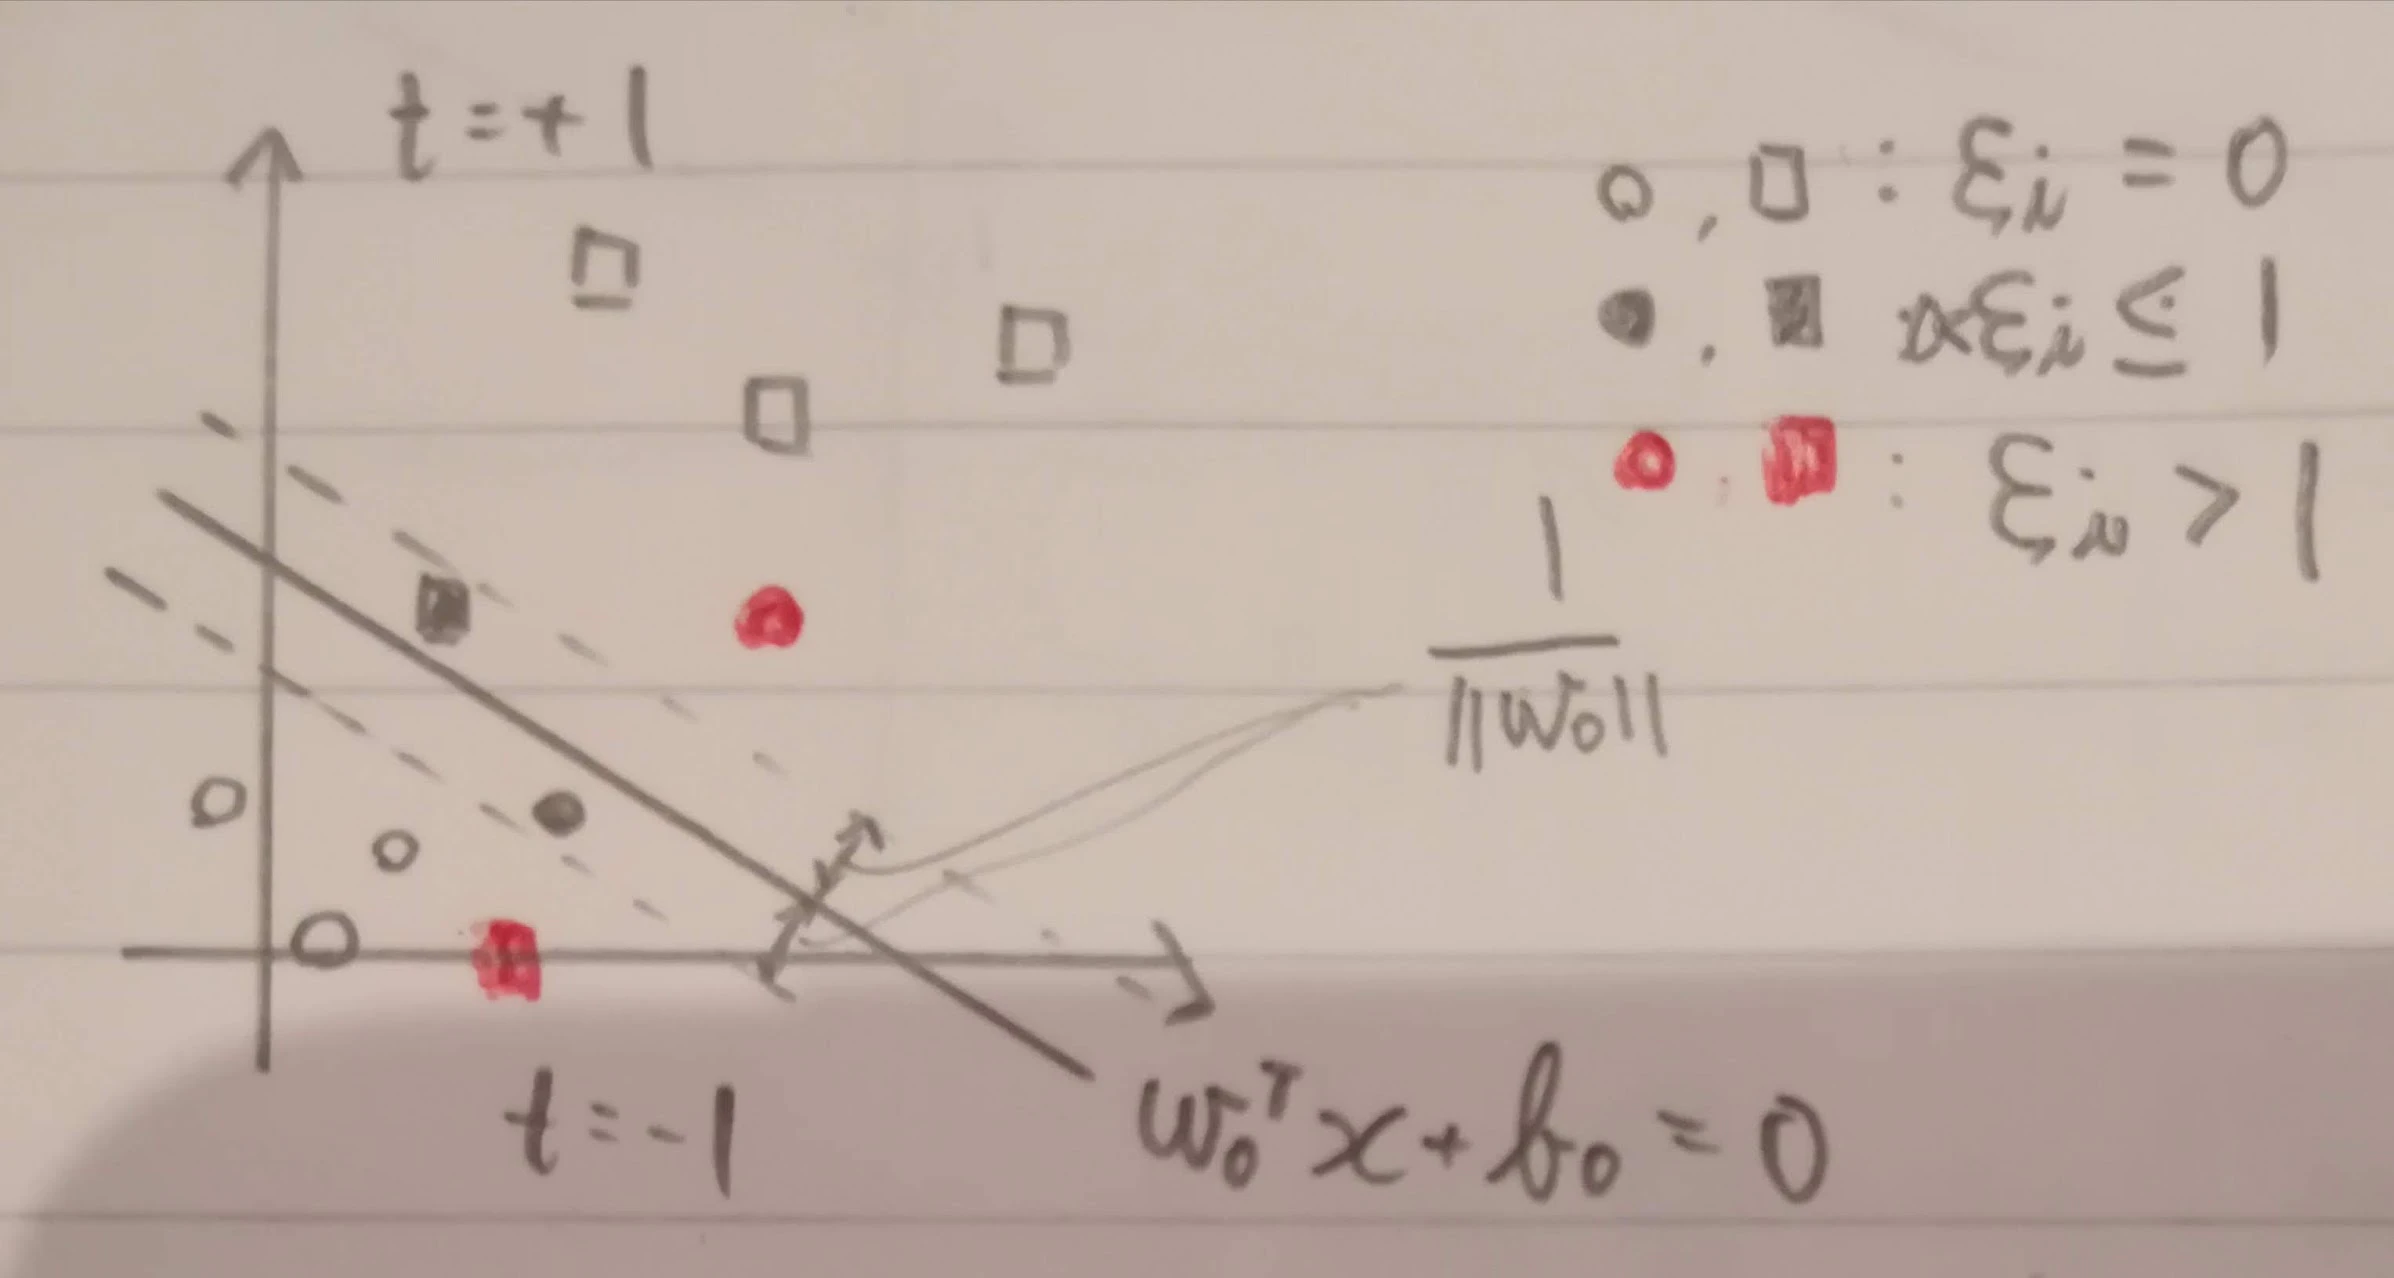 t=+1
○, □ : ξi = 0
●, ■ ξi ≤ 1
●, ■ : ξi > 1
1
‖w₀‖
t=-1
w₀ᵀx+b₀=0